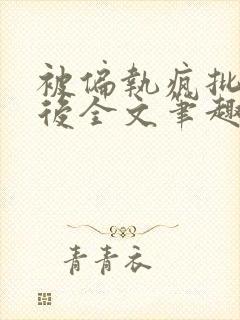 被偏執瘋批
後全文筆趣
青青衣